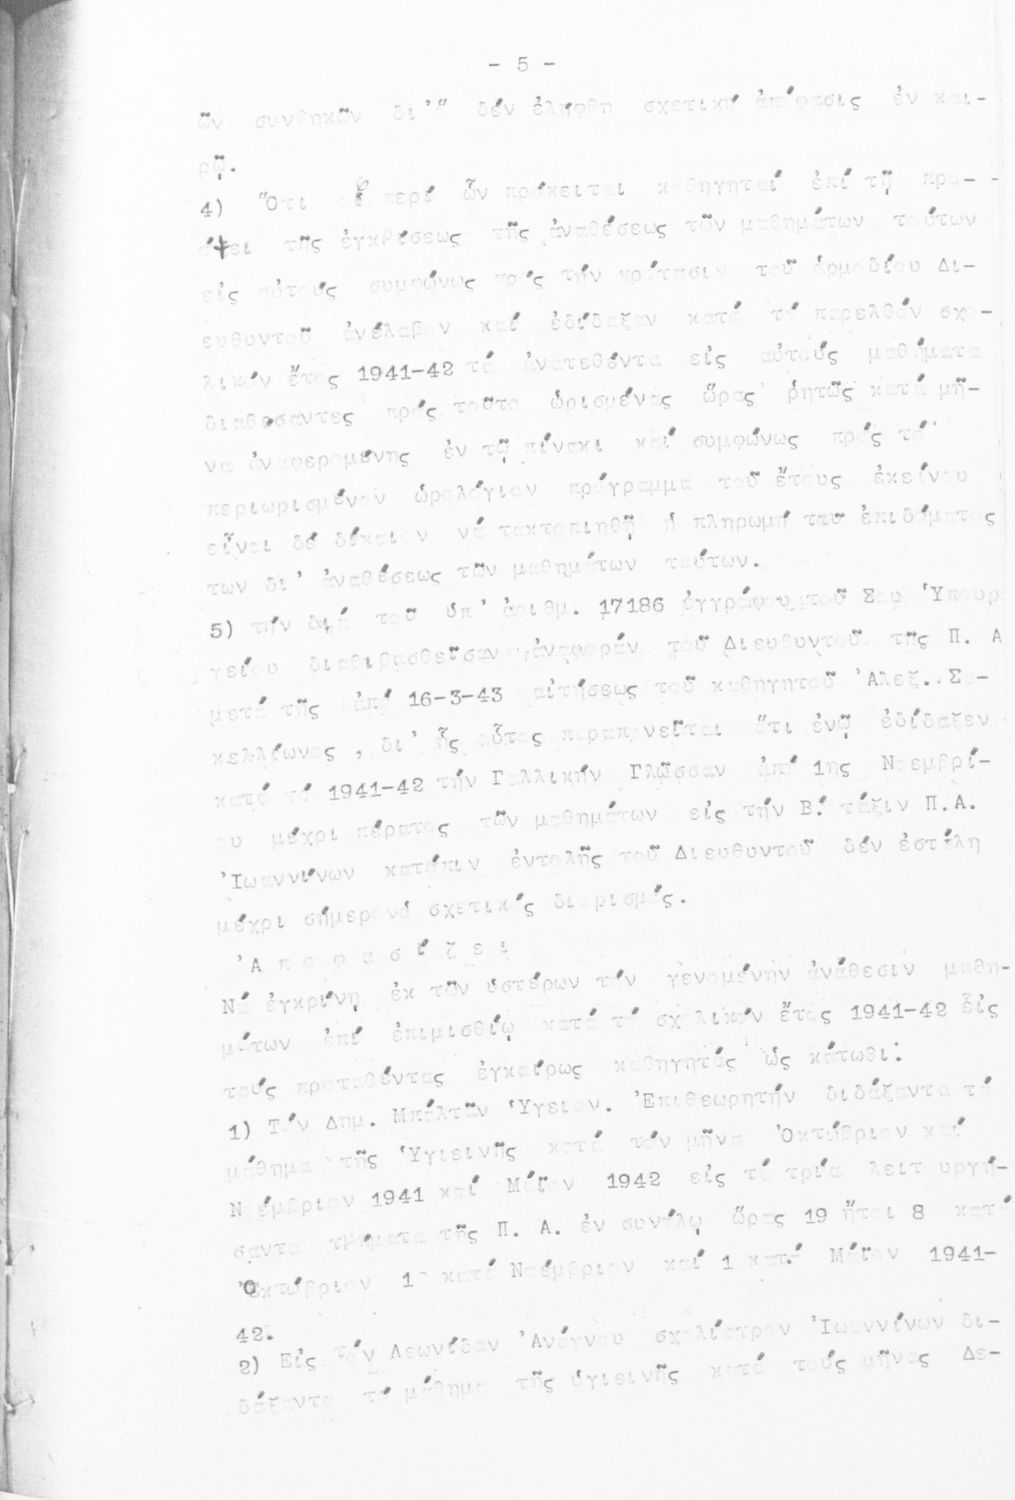 - 5 -
ῶν συνθηκῶν δι'ὅ δέν ἐλήφθη σχετική ἀπόφασις ἐν και-
ρῷ.
4) Ὅτι οἱ περί ὧν πρόκειται καθηγηταί ἐπί τῇ προ-
όψει τῆς ἐγκρίσεως τῆς ἀναθέσεως τῶν μαθημάτων τούτων
εἰς αὐτούς συμφώνως πρός τήν πρότασιν τοῦ ἁρμοδίου Δι-
ευθυντοῦ ἀνέλαβον καί ἐδίδαξαν κατά τό παρελθόν σχο-
λικόν ἔτος 1941-42 τά ἀνατεθέντα εἰς αὐτούς μαθήματα
διαθέσαντες πρός τοῦτο ὡρισμένας ὥρας ῥητῶς κατά μῆ-
να ἀναφερομένης ἐν τῷ πίνακι καί συμφώνως πρός τό
περιωρισμένον ὡρολόγιον πρόγραμμα τοῦ ἔτους ἐκείνου
εἶναι δέ δίκαιον νά τακτοπιηθῇ ἡ πληρωμή τοῦ ἐπιδόματος
των δι' ἀναθέσεως τῶν μαθημάτων τούτων.
5) τήν διά τοῦ ὑπ' ἀριθμ. 17186 ἐγγράφου τοῦ Σου Ὑπουρ
γείου διαβιβασθεῖσαν ἀναφοράν τοῦ Διευθυντοῦ τῆς Π. Α
μετά τῆς ἀπό 16-3-43 αἰτήσεως τοῦ καθηγητοῦ Ἀλεξ. Σα-
κελλίωνος , δι' ἧς οὗτος παραπονεῖται ὅτι ἐνῷ ἐδίδαξεν
κατά τό 1941-42 τήν Γαλλικήν Γλῶσσαν ἀπό 1ης Νοεμβρί-
ου μέχρι πέρατος τῶν μαθημάτων εἰς τήν Β! τάξιν Π.Α.
Ἰωαννίνων κατόπιν ἐντολῆς τοῦ Διευθυντοῦ δέν ἐστάλη
μέχρι σήμερον ὁ σχετικός διορισμός.
Ἀ π ο φ α σ ί ζ ε ι
Νά ἐγκρίνῃ ἐκ τῶν ὑστέρων τήν γενομένην ἀνάθεσιν μαθη-
μάτων ἐπί ἐπιμισθίῳ κατά τό σχολικόν ἔτος 1941-42 εἰς
τούς προταθέντας ἐγκαίρως καθηγητάς ὡς κάτωθι:
1) Τόν Δημ. Μπάλτῶν Ὑγειον. Ἐπιθεωρητήν διδάξαντα τό
μάθημα τῆς Ὑγιεινῆς κατά τόν μῆνα Ὀκτώβριον καί
Νοέμβριον 1941 καί Μάϊον 1942 εἰς τά τρία λειτουργή-
σαντα τμήματα τῆς Π. Α. ἐν συνόλῳ ὥρας 19 ἤτοι 8 κατά
Ὀκτώβριον 1 κατά Νοέμβριον καί 1 κατά Μάϊον 1941-
42.
2) Εἰς τόν Λεωνίδαν Ἀνάγνου σχολίατρον Ἰωαννίνων δι-
δάξαντα τό μάθημα τῆς ὑγιεινῆς κατά τούς μῆνας Δε-